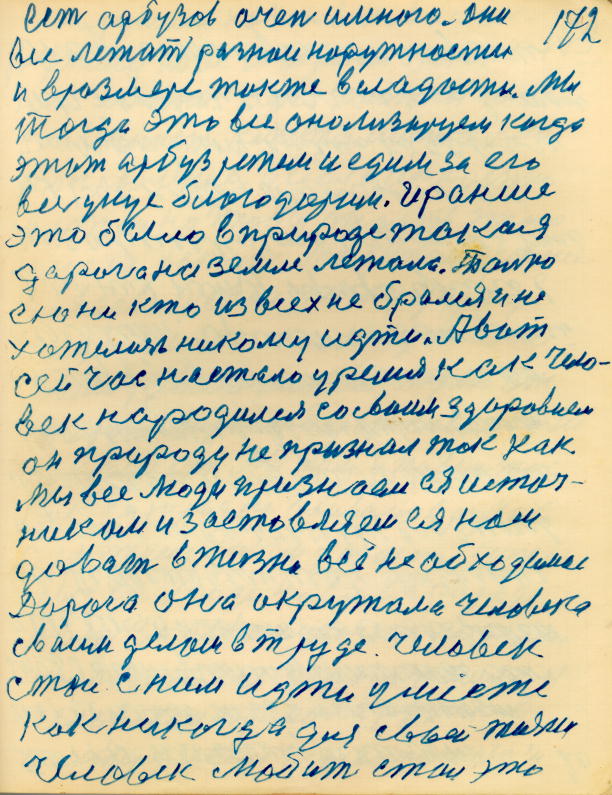 ест арбузов очен и много. они 172
все лежат разнои наружностии
и в размере также в сладости. Мы
тогда это все анолизируем когда
этот арбуз режем и едим за его
вкус благодорим. И раньше
это было в природе такая
дарога на земле лежала. Толко
с не никто из всех не брался и не
хотелось никому идти. А вот
сейчас настало уремя как чело-
век народился со своим здоровием
он природу не признал так как
мы все люди признаем ся источ-
ником и заставляемся нам
давать в жизни всё необходимое
Дорога она окружала человека
своим делом в труде. Человек
стои с ним идти уместе
как никогда для свои жизни
человек любит стои это